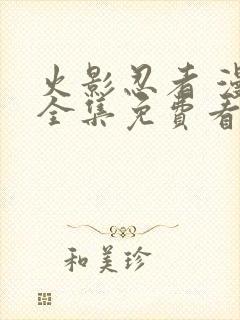 火影忍者 漫
全集免費看
和美珍